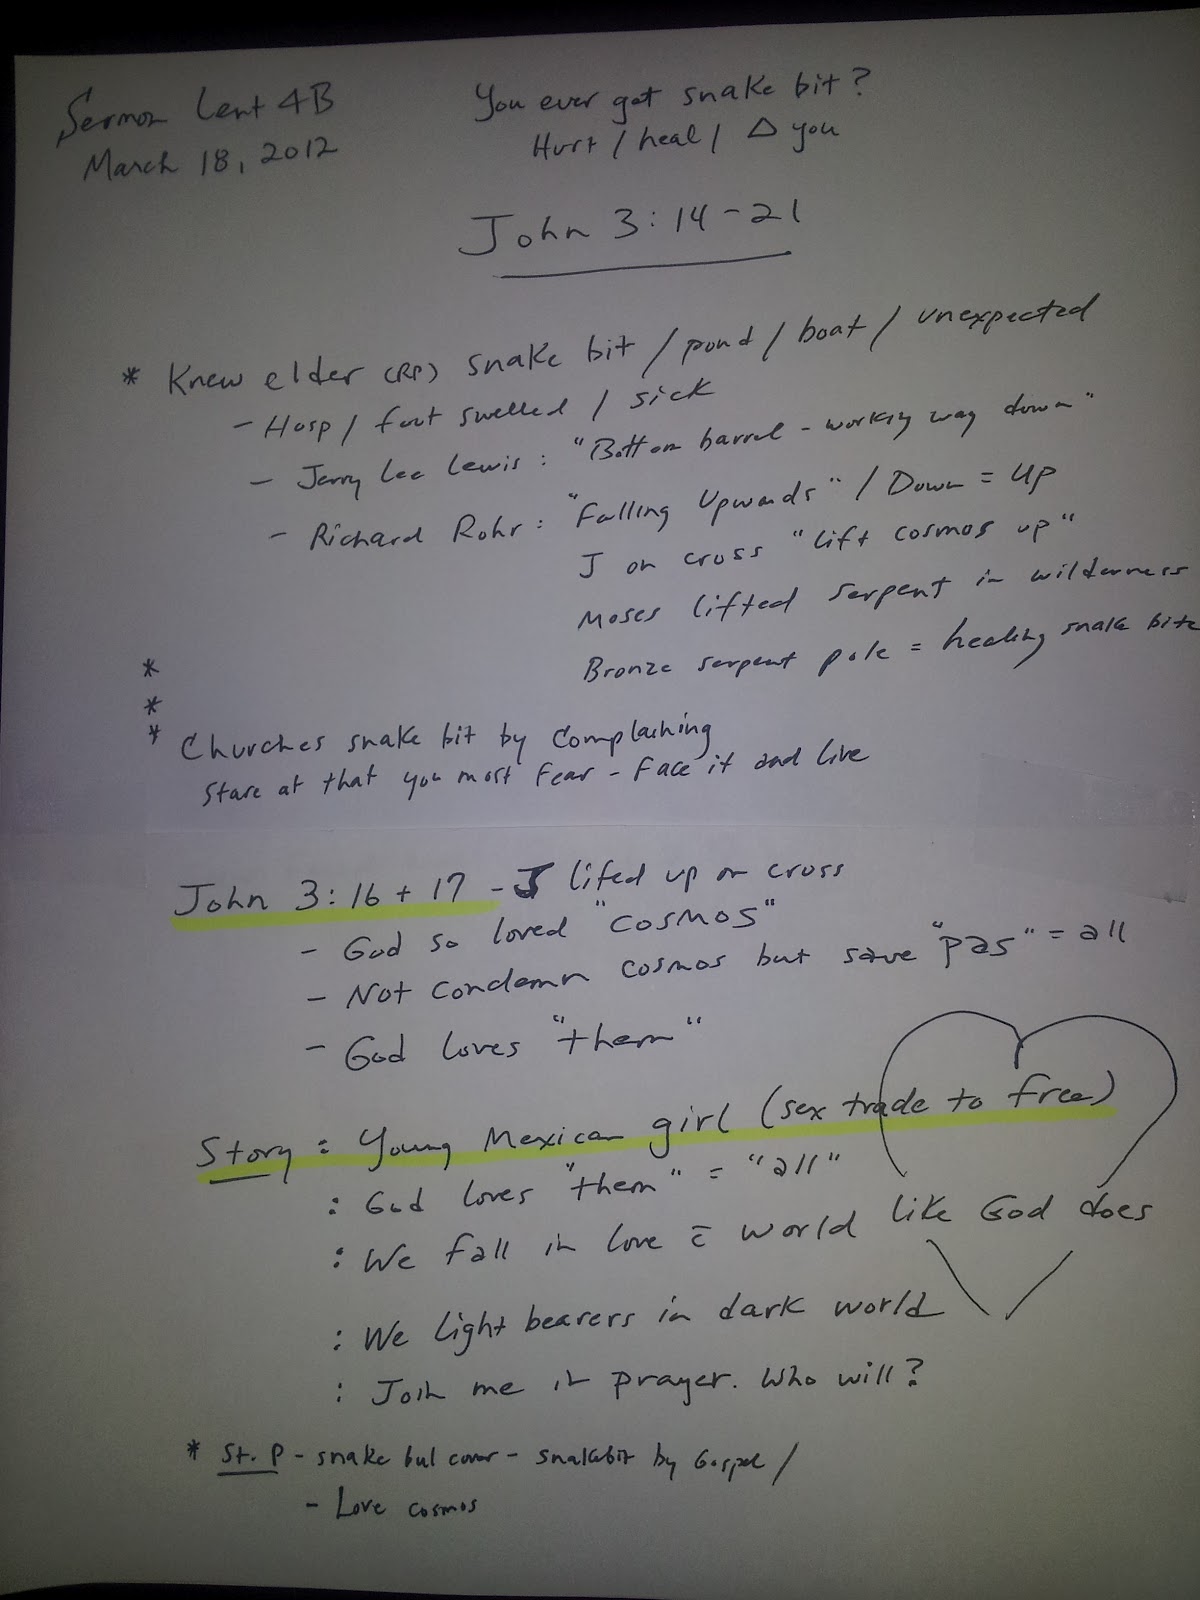 Sermon Lent 4B
March 18, 2012
You ever get snake bit?
Hurt / heal / Δ you
John 3:14-21
* Knew elder (RP) snake bit / pond / boat / unexpected
- Hosp / foot swelled / sick
- Jerry Lee Lewis: "Bottom barrel - working way down"
- Richard Rohr: "Falling Upwards" / Down = Up
J on cross "lift cosmos up"
Moses lifted serpent in wilderness
Bronze serpent pole = healing snake bite
*
*
* Churches snake bit by complaining
Stare at that you most fear - Face it and live
John 3:16 + 17 - J lifed up on cross
- God so loved "cosmos"
- Not condemn cosmos but save "pas" = all
- God loves "them"
Story: Young Mexican girl (sex trade to free)
: God loves "them" = "all"
: We fall in love c̄ world like God does
: We light bearers in dark world
: Join me in prayer. Who will?
* St. P - snake bul cover - snakebit by Gospel /
- Love cosmos